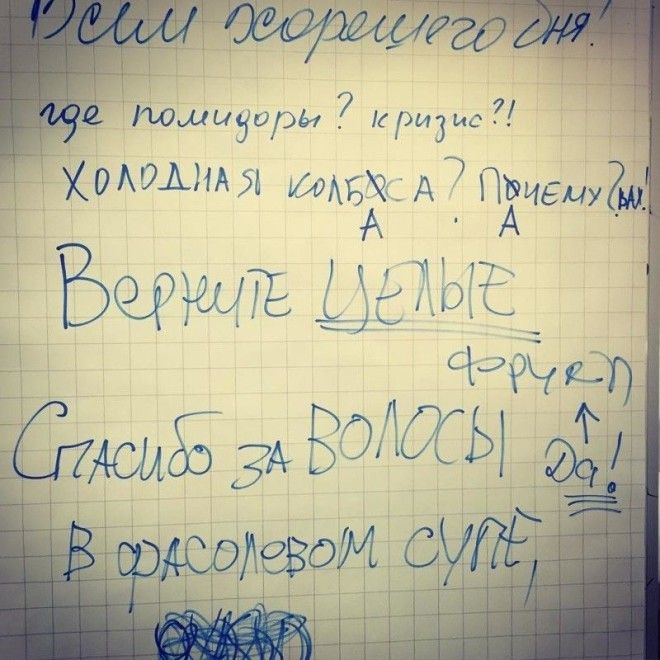 Всем хорошего дня!
где помидоры? кризис?!
ХОЛОДНАЯ КОЛБОСА? ПОЧЕМУ?
А А
ВЕРНИТЕ ЦЕЛЫЕ
ФРУКТЫ
СПАСИБО ЗА ВОЛОСЫ
Да!
В ФАСОЛЕВОМ СУПЕ,